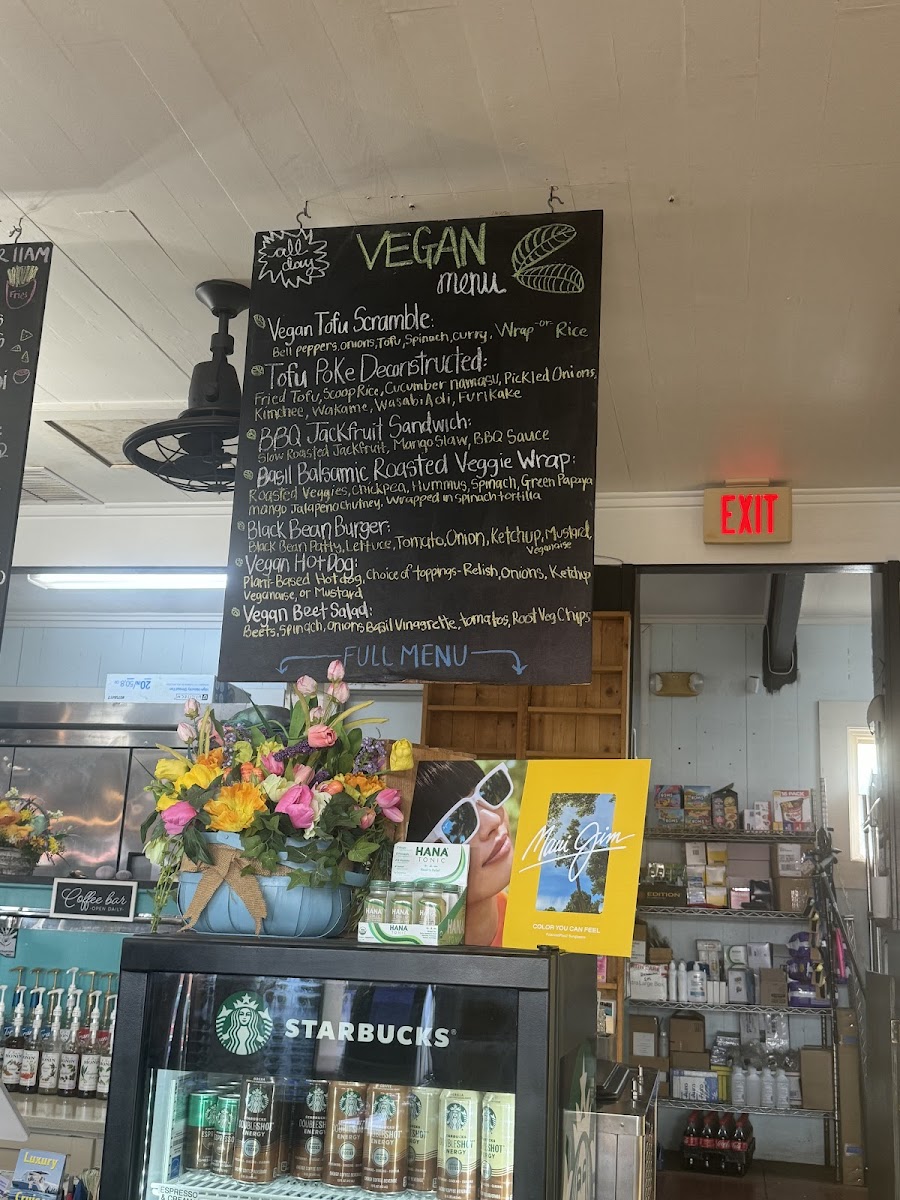 R 11AM
Fries
all day
VEGAN
menu
Vegan Tofu Scramble:
Bell peppers, onions, Tofu, Spinach, curry, Wrap -or Rice
Tofu Poke Deconstructed:
Fried Tofu, Scoop Rice, Cucumber namasu, Pickled Onions,
Kimchee, Wakame, Wasabi Aoli, Furikake
BBQ Jackfruit Sandwich:
Slow Roasted Jackfruit, Mango Slaw, BBQ Sauce
Basil Balsamic Roasted Veggie Wrap:
Roasted Veggies, chickpea, Hummus, Spinach, Green Papaya
mango Jalapeno chutney, Wrapped in spinach tortilla
Black Bean Burger:
Black Bean Patty, Lettuce, Tomato, Onion, Ketchup, Mustard,
Veganaise
Vegan Hot Dog:
Plant-Based Hotdog, Choice of toppings - Relish, Onions, Ketchup
Veganaise, or Mustard
Vegan Beet Salad:
Beets, Spinach, onions Basil Vinagrette, tomatos, Root Veg Chips
FULL MENU
EXIT
Coffee bar
OPEN DAILY
HANA
TONIC
HANA
HANA
Maui Jim
COLOR YOU CAN FEEL
EDITION
STARBUCKS
DOUBLESHOT
ENERGY
ESPRESSO
& CREAM
Luxury